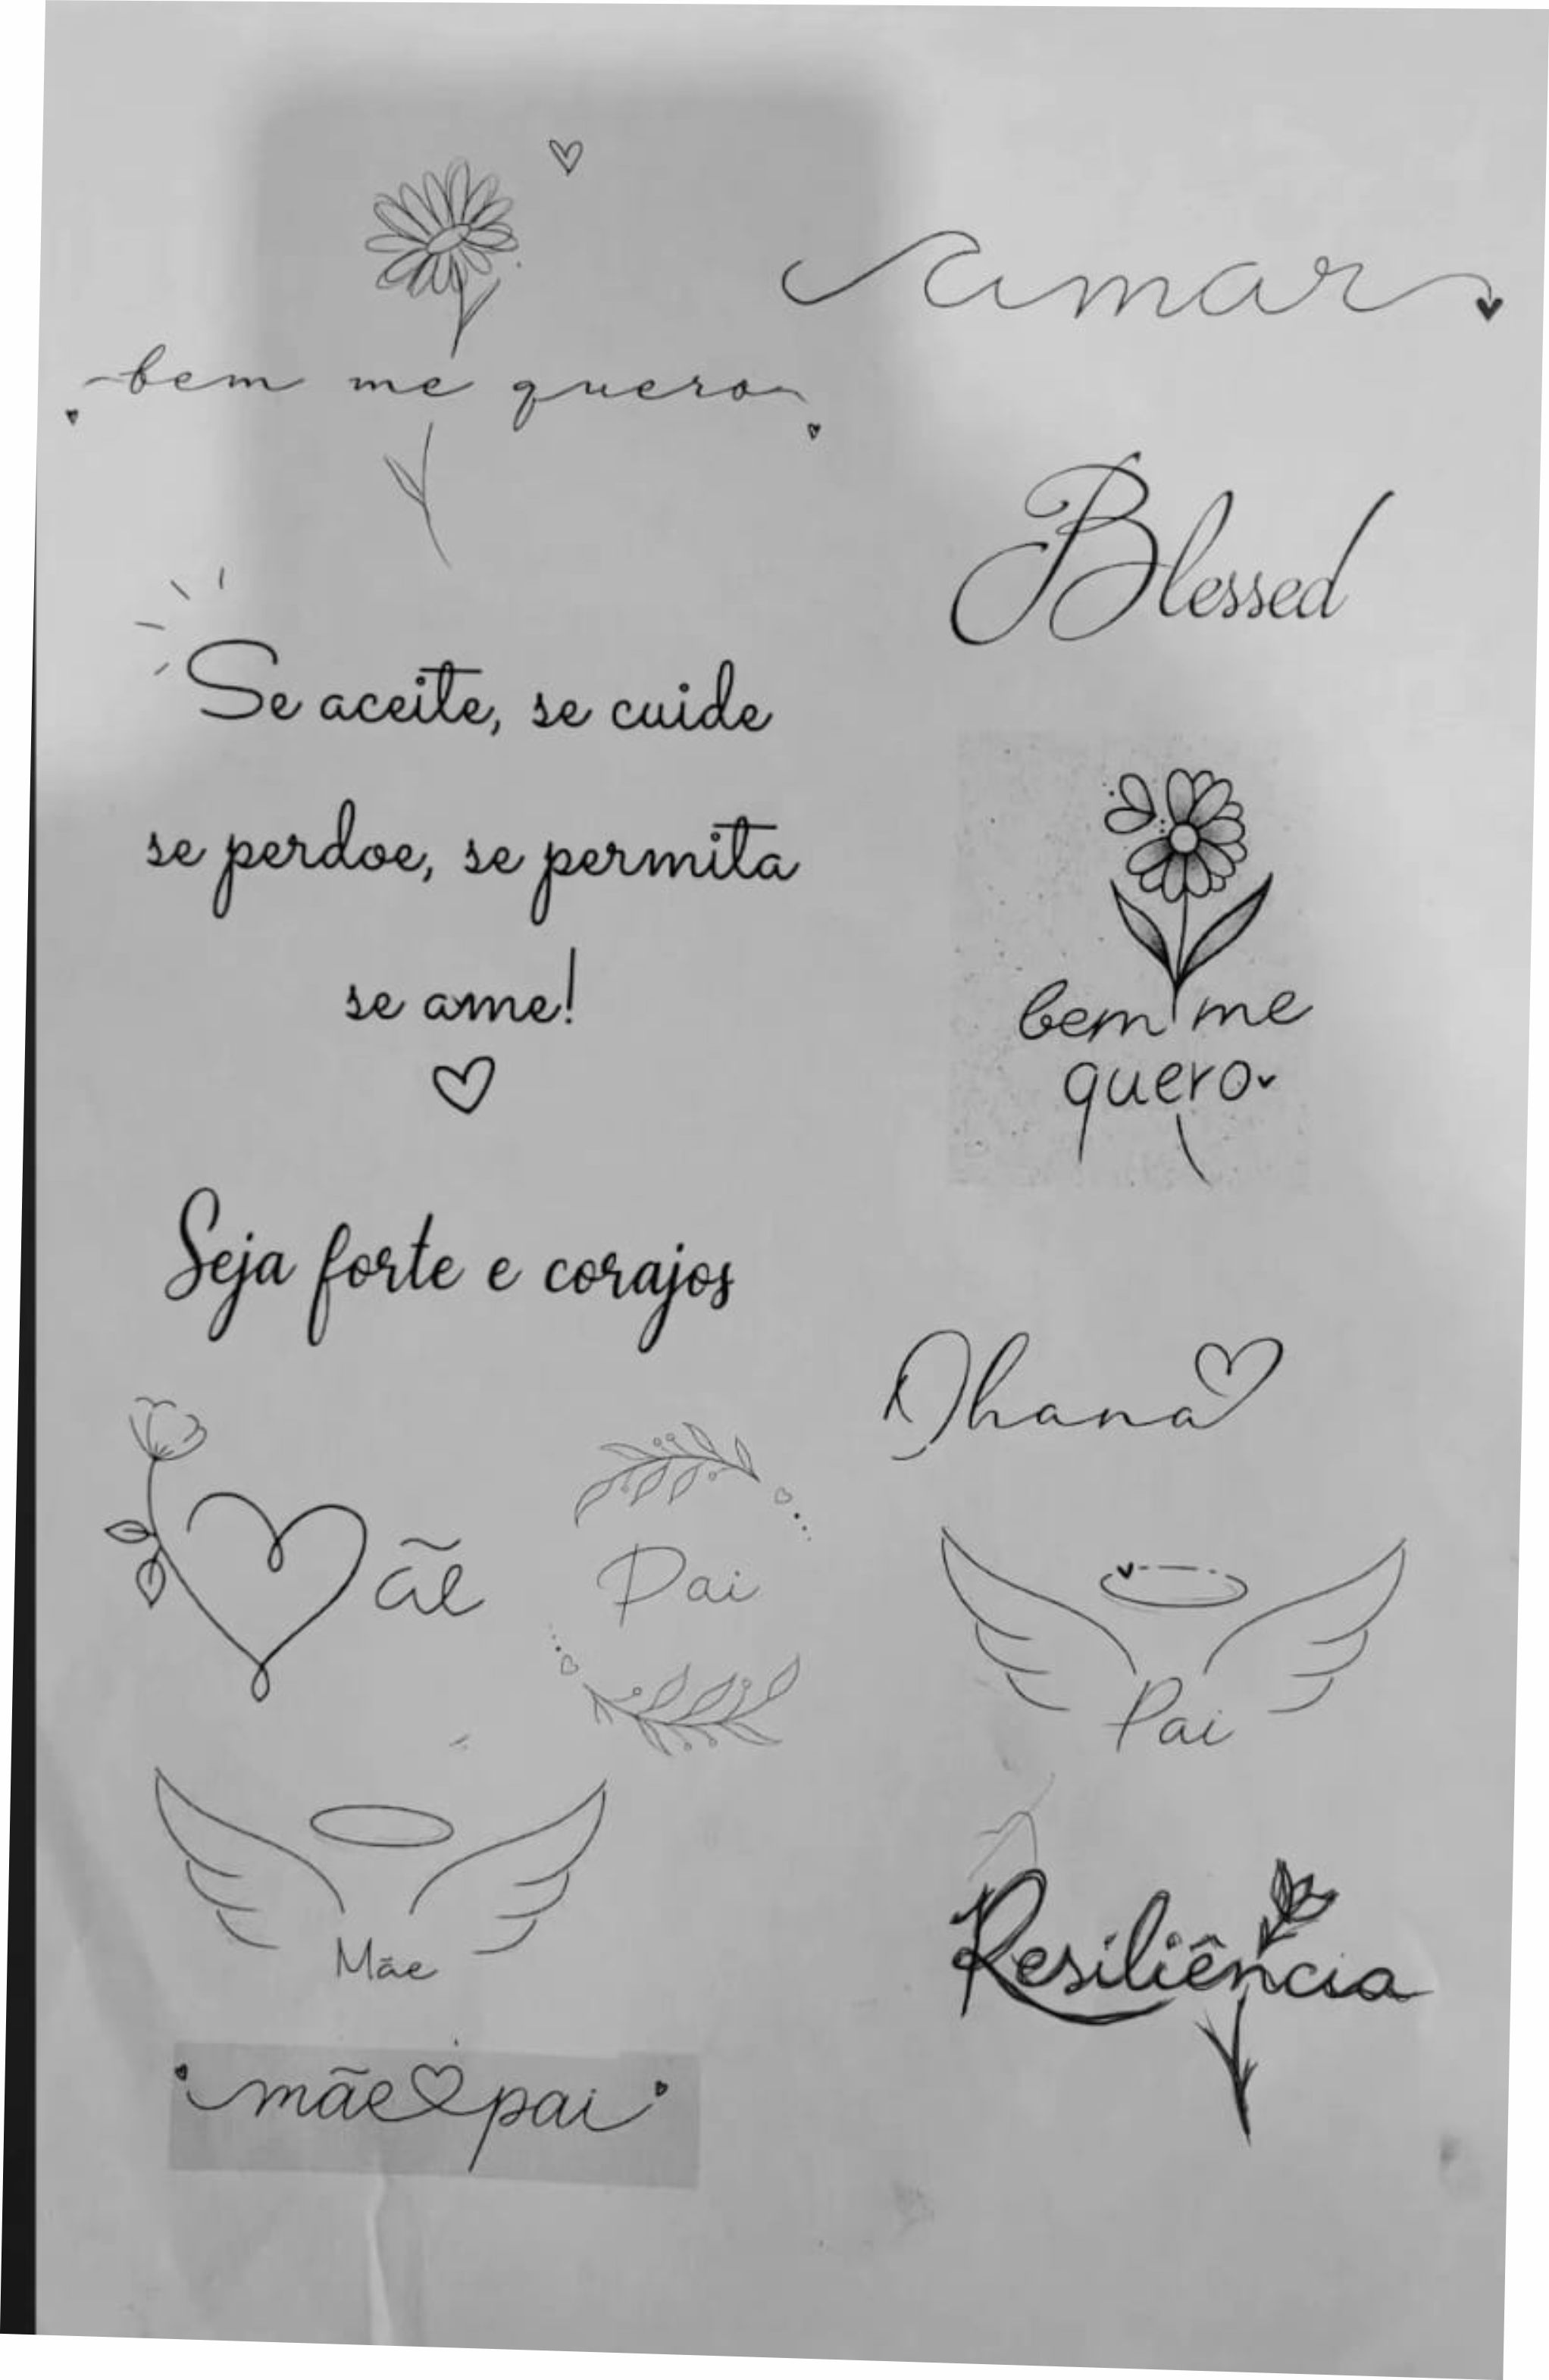 bem me quero
amar
Blessed
Se aceite, se cuide
se perdoe, se permita
se ame!
bem me
quero
Seja forte e corajos
Ohana
ãe
Pai
Pai
Mãe
Resiliência
mãe pai